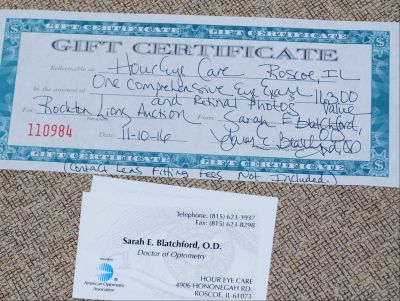 GIFT CERTIFICATE
Redeemable at: Hour Eye Care Roscoe, IL
In the amount of One Comprehensive Eye Exam 163.00
and Retinal Photos Value
For: Rockton Lions Auction From: Sarah E Blatchford, O.D.
110984 Date: 11-10-16 Sarah E Blatchford, OD
(Contact Lens Fitting Fees Not Included.)
Telephone: (815) 623-3937
Fax: (815) 623-8298
Sarah E. Blatchford, O.D.
Doctor of Optometry
Member
American Optometric
Association
HOUR EYE CARE
4906 HONONEGAH RD.
ROSCOE, IL 61073